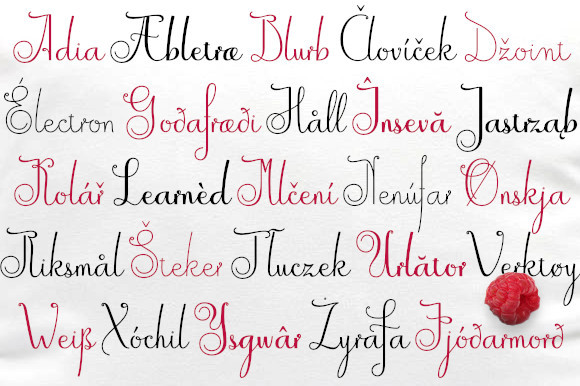 Adia Æbletræ Blurb Človíček Džoint
Électron Goðafræði Håll Însevă Jastrząb
Kolář Learnèd Mlčení Nenúfar Ønskja
Riksmål Šteker Tłuczek Urlător Verktøy
Weiß Xóchil Ysgwâr Żyrafa Þjóðarmorð